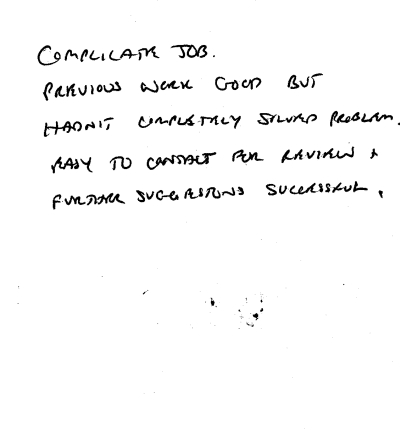 COMPLICATE JOB.
PREVIOUS WORK GOOD BUT
HADN'T COMPLETELY SOLVED PROBLEM.
EASY TO CONTACT FOR REVIEW +
FURTHER SUGGESTIONS SUCCESSFUL.